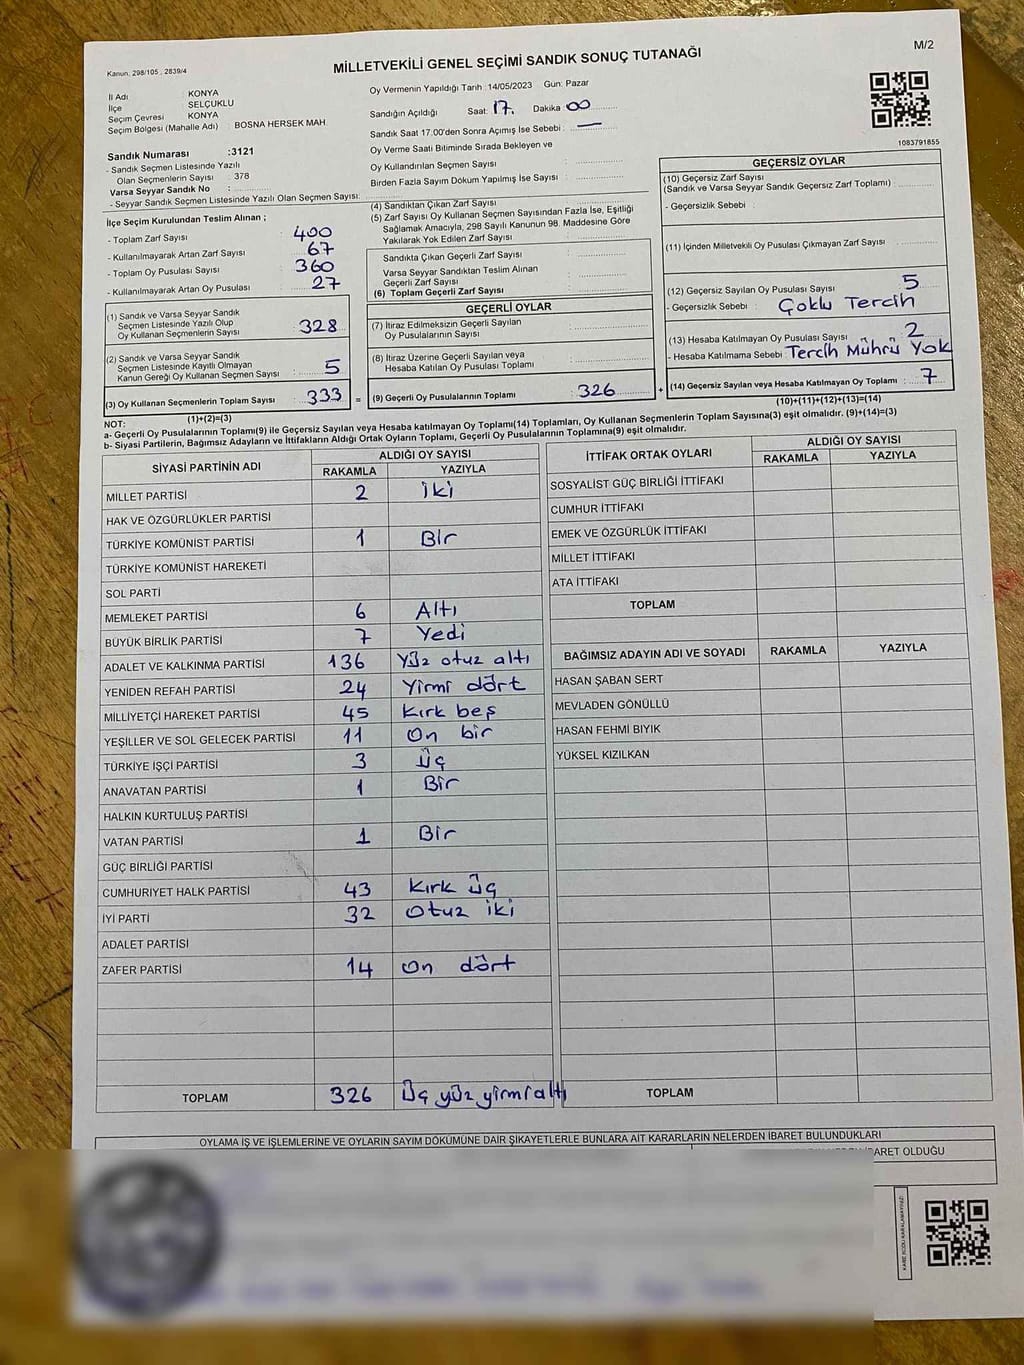 M/2
Kanun, 298/105 , 2839/4
MİLLETVEKİLİ GENEL SEÇİMİ SANDIK SONUÇ TUTANAĞI
İl Adı KONYA
İlçe SELÇUKLU
Seçim Çevresi KONYA
Seçim Bölgesi (Mahalle Adı) : BOSNA HERSEK MAH.
Sandık Numarası :3121
- Sandık Seçmen Listesinde Yazılı
Olan Seçmenlerin Sayısı : 378
Varsa Seyyar Sandık No :
- Seyyar Sandık Seçmen Listesinde Yazılı Olan Seçmen Sayısı:
Oy Vermenin Yapıldığı Tarih :14/05/2023 Gün: Pazar
Sandığın Açıldığı Saat: 17. Dakika : 00
Sandık Saat 17:00'den Sonra Açımış İse Sebebi : —
Oy Verme Saati Bitiminde Sırada Bekleyen ve
Oy Kullandırılan Seçmen Sayısı :
Birden Fazla Sayım Döküm Yapılmış İse Sayısı :
1083791855
İlçe Seçim Kurulundan Teslim Alınan ;
- Toplam Zarf Sayısı : 400
- Kullanılmayarak Artan Zarf Sayısı : 67
- Toplam Oy Pusulası Sayısı : 360
- Kullanılmayarak Artan Oy Pusulası : 27
(1) Sandık ve Varsa Seyyar Sandık
Seçmen Listesinde Yazılı Olup
Oy Kullanan Seçmenlerin Sayısı : 328
(2) Sandık ve Varsa Seyyar Sandık
Seçmen Listesinde Kayıtlı Olmayan
Kanun Gereği Oy Kullanan Seçmen Sayısı : 5
(3) Oy Kullanan Seçmenlerin Toplam Sayısı : 333 =
(1)+(2)=(3)
(4) Sandıktan Çıkan Zarf Sayısı :
(5) Zarf Sayısı Oy Kullanan Seçmen Sayısından Fazla İse, Eşitliği
Sağlamak Amacıyla, 298 Sayılı Kanunun 98. Maddesine Göre
Yakılarak Yok Edilen Zarf Sayısı :
Sandıkta Çıkan Geçerli Zarf Sayısı :
Varsa Seyyar Sandıktan Teslim Alınan
Geçerli Zarf Sayısı :
(6) Toplam Geçerli Zarf Sayısı :
GEÇERLİ OYLAR
(7) İtiraz Edilmeksizin Geçerli Sayılan
Oy Pusulalarının Sayısı :
(8) İtiraz Üzerine Geçerli Sayılan veya
Hesaba Katılan Oy Pusulası Toplamı :
(9) Geçerli Oy Pusulalarının Toplamı : 326 +
GEÇERSİZ OYLAR
(10) Geçersiz Zarf Sayısı
(Sandık ve Varsa Seyyar Sandık Geçersiz Zarf Toplamı) :
- Geçersizlik Sebebi :
(11) İçinden Milletvekili Oy Pusulası Çıkmayan Zarf Sayısı :
(12) Geçersiz Sayılan Oy Pusulası Sayısı : 5
- Geçersizlik Sebebi : Çoklu Tercih
(13) Hesaba Katılmayan Oy Pusulası Sayısı : 2
- Hesaba Katılmama Sebebi : Tercih Mührü Yok
(14) Geçersiz Sayılan veya Hesaba Katılmayan Oy Toplamı : 7
(10)+(11)+(12)+(13)=(14)
NOT:
a- Geçerli Oy Pusulalarının Toplamı(9) ile Geçersiz Sayılan veya Hesaba katılmayan Oy Toplamı(14) Toplamları, Oy Kullanan Seçmenlerin Toplam Sayısına(3) eşit olmalıdır. (9)+(14)=(3)
b- Siyasi Partilerin, Bağımsız Adayların ve İttifakların Aldığı Ortak Oyların Toplamı, Geçerli Oy Pusulalarının Toplamına(9) eşit olmalıdır.
SİYASİ PARTİNİN ADI ALDIĞI OY SAYISI
RAKAMLA YAZIYLA
MİLLET PARTİSİ 2 iki
HAK VE ÖZGÜRLÜKLER PARTİSİ
TÜRKİYE KOMÜNİST PARTİSİ 1 Bir
TÜRKİYE KOMÜNİST HAREKETİ
SOL PARTİ
MEMLEKET PARTİSİ 6 Altı
BÜYÜK BİRLİK PARTİSİ 7 Yedi
ADALET VE KALKINMA PARTİSİ 136 Yüz otuz altı
YENİDEN REFAH PARTİSİ 24 Yirmi dört
MİLLİYETÇİ HAREKET PARTİSİ 45 Kırk beş
YEŞİLLER VE SOL GELECEK PARTİSİ 11 On bir
TÜRKİYE İŞÇİ PARTİSİ 3 Üç
ANAVATAN PARTİSİ 1 Bir
HALKIN KURTULUŞ PARTİSİ
VATAN PARTİSİ 1 Bir
GÜÇ BİRLİĞİ PARTİSİ
CUMHURİYET HALK PARTİSİ 43 Kırk üç
İYİ PARTİ 32 Otuz iki
ADALET PARTİSİ
ZAFER PARTİSİ 14 On dört
TOPLAM 326 Üç yüz yirmi altı
İTTİFAK ORTAK OYLARI ALDIĞI OY SAYISI
RAKAMLA YAZIYLA
SOSYALİST GÜÇ BİRLİĞİ İTTİFAKI
CUMHUR İTTİFAKI
EMEK VE ÖZGÜRLÜK İTTİFAKI
MİLLET İTTİFAKI
ATA İTTİFAKI
TOPLAM
BAĞIMSIZ ADAYIN ADI VE SOYADI RAKAMLA YAZIYLA
HASAN ŞABAN SERT
MEVLADEN GÖNÜLLÜ
HASAN FEHMİ BIYIK
YÜKSEL KIZILKAN
TOPLAM
OYLAMA İŞ VE İŞLEMLERİNE VE OYLARIN SAYIM DÖKÜMÜNE DAİR ŞİKAYETLERLE BUNLARA AİT KARARLARIN NELERDEN İBARET BULUNDUKLARI
İBARET OLDUĞU